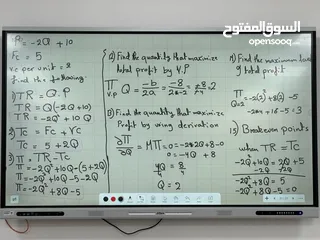 السوق المفتوح
opensooq.com
P = -2Q + 10
Fc = 5
v.c per unit = 2
find the following
1) TR = Q.P
TR = Q(-2Q + 10)
TR = -2Q² + 10Q
2) Tc = Fc + Vc
Tc = 5 + 2Q
3) π = TR - Tc
π = -2Q² + 10Q - (5 + 2Q)
π = -2Q² + 10Q - 5 - 2Q
π = -2Q² + 8Q - 5
Find the quantity that maximize
total profit by V.P
π V.P Q = -b/2a = -8/2·-2 = -8/-4 = 2
Find the quantity that maximize
Profit by using derivation
∂π/∂Q = Mπ = 0 = -2·2Q + 8 - 0
0 = -4Q + 8
4Q = 8
Q = 2
Find the maximum
total profit
π Q=2 = -2(2)² + 8(2) - 5
15) Break even points
when TR = Tc
-2Q² + 10Q = 2Q + 5
-2Q -2Q
-2Q² + 8Q = 5
-2Q² + 8Q - 5 = 0